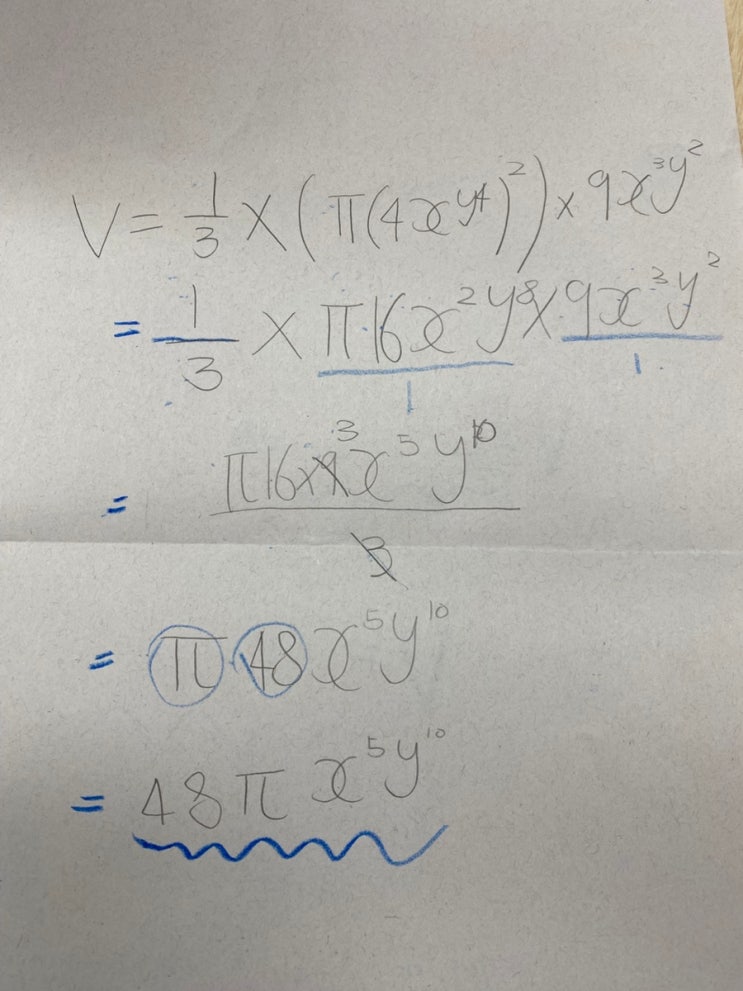 V = 1/3 × (π(4xy⁴)²) × 9x³y²
= 1/3 × π16x²y⁸ × 9x³y²
1 1
= π16×9x⁵y¹⁰/3 3
= π48x⁵y¹⁰
= 48πx⁵y¹⁰